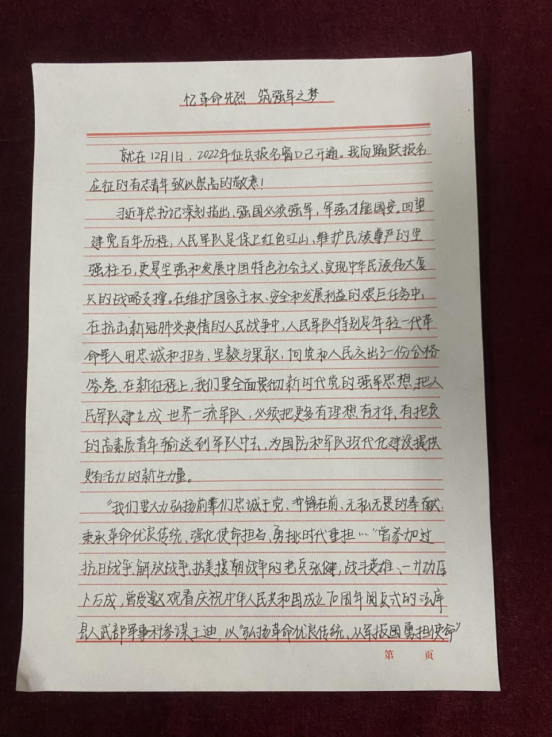 忆革命先烈 筑强军之梦
就在12月1日，2022年征兵报名窗口已开通。我向踊跃报名
应征的有志青年致以崇高的敬意！
习近平总书记深刻指出，强国必须强军，军强才能国安。回望
建党百年历程，人民军队是保卫红色江山、维护民族尊严的坚
强柱石，更是坚强和发展中国特色社会主义、实现中华民族伟大复
兴的战略支撑。在维护国家主权、安全和发展利益的艰巨任务中，
在抗击新冠肺炎疫情的人民战争中，人民军队特别是年轻一代革
命军人用忠诚和担当、坚毅与果敢，向党和人民交出了一份合格
答卷。在新征程上，我们要全面贯彻新时代党的强军思想，把人
民军队建立成世界一流军队，必须把更多有理想有才华、有抱负
的高素质青年输送到军队中去，为国防和军队现代化建设提供
更有活力的新生力量。
"我们要大力弘扬前辈们忠诚于党、冲锋在前、无私无畏的奉献，
秉承革命优良传统，强化使命担当，勇挑时代重担……"曾参加过
抗日战争、解放战争、抗美援朝战争的老兵张健，战斗英雄、一
卜万成，曾受邀观看庆祝中华人民共和国成立70周年阅兵式的
县人武部军事科参谋王迪，以"弘扬革命优良传统，从军报国勇担使命"
第 页